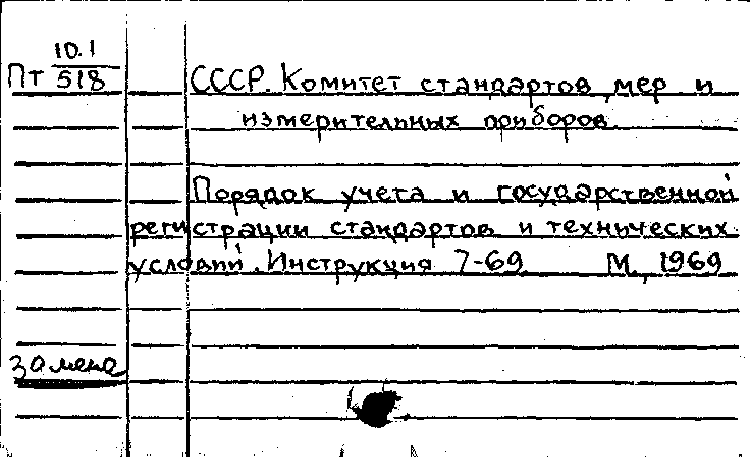 10.1
Пт 518
СССР. Комитет стандартов, мер и
измерительных приборов.
Порядок учета и государственной
регистрации стандартов и технических
условий. Инструкция 7-69. М., 1969
замена